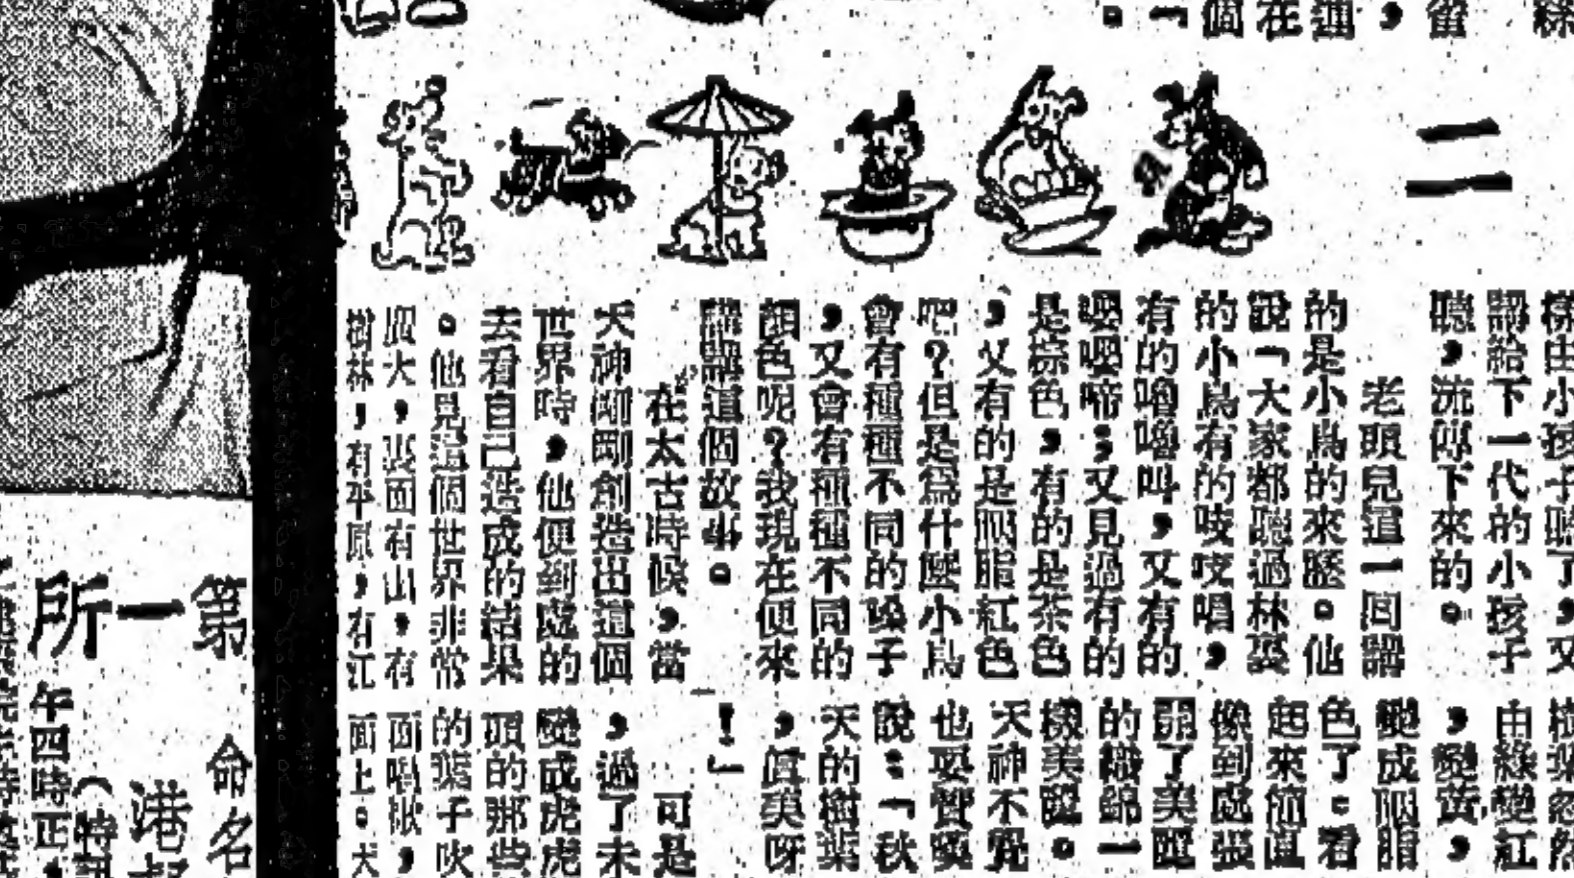 二
樣由小孩子聽了，又
講給下一代的小孩子
聽，流傳下來的。
老頭兒這一回講
的是小鳥的來歷。他
說「大家都聽過林裏
的小鳥有的吱吱唱，
有的嚕嚕叫，又有的
嚶嚶啼；又見過有的
是棕色，有的是茶色
，又有的是胭脂紅色
吧？但是爲什麼小鳥
會有種種不同的嗓子
，又會有種種不同的
顏色呢？我現在便來
講講這個故事。
在太古時候，當
天神剛剛創造出這個
世界時，他便到處的
去看自己造成的結果
。他見這個世界非常
廣大，裏面有山，有
樹林，有平原，有江
由綠變紅
，變黃，
變成胭脂
色了。看
起來簡直
像到處張
開了美麗
的織錦一
樣美麗。
天神不覺
也要贊嘆
說：「秋
天的樹葉
，眞美呀
！」
可是
，過了未
變成虎虎
頭的那些
的葉子吹
面
面上。大
第一所
命名
港
午四時正，